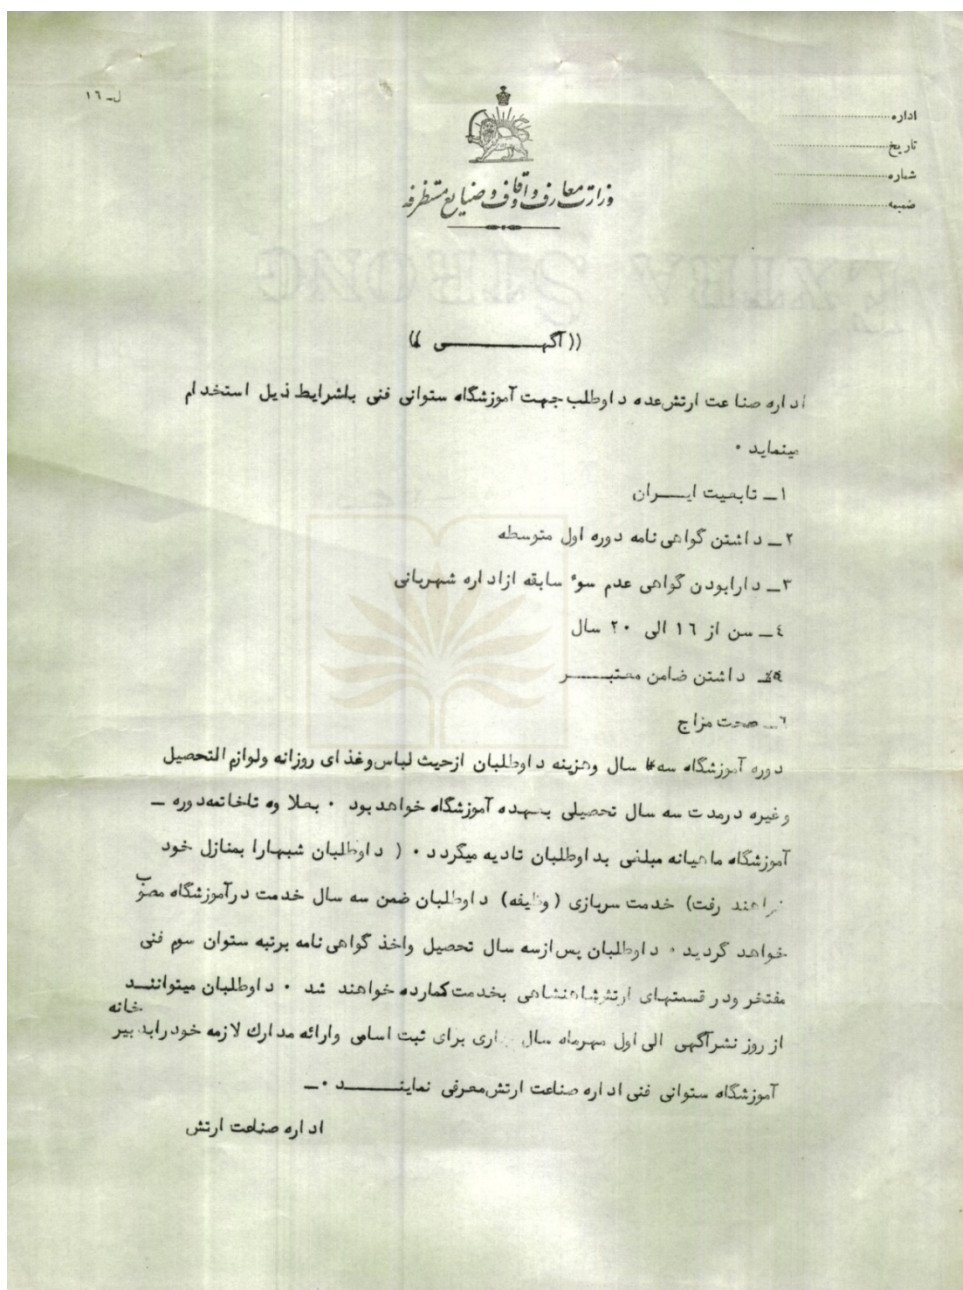 ل‌ـ ١٦
اداره
تاریخ
شماره
ضمیمه
وزارت معارف و اوقاف و صنایع مستظرفه
((آگهـــــــی))
اداره صناعت ارتش عده داوطلب جهت آموزشگاه ستوانی فنی باشرایط ذیل استخدام
مینماید ٠
١ــ تابعیت ایـــران
٢ــ داشتن گواهی نامه دوره اول متوسطه
٣ــ دارابودن گواهی عدم سوء سابقه ازاداره شهربانی
٤ــ سن از ١٦ الی ٢٠ سال
٥ــ داشتن ضامن معتبــــر
٦ــ صحت مزاج
دوره آموزشگاه سه سال وهزینه داوطلبان ازحیث لباس وغذای روزانه ولوازم التحصیل
وغیره درمدت سه سال تحصیلی بعهده آموزشگاه خواهد بود ٠ بعلاوه تاخاتمه دوره ــ
آموزشگاه ماهیانه مبلغی بداوطلبان تادیه میگردد ٠ ( داوطلبان شبهارا بمنازل خود
خواهند رفت) خدمت سربازی (وظیفه) داوطلبان ضمن سه سال خدمت درآموزشگاه محسوب
خواهد گردید ٠ داوطلبان پس ازسه سال تحصیل واخذ گواهی نامه برتبه ستوان سوم فنی
مفتخر ودر قسمتهای ارتش شاهنشاهی بخدمت گمارده خواهند شد ٠ داوطلبان میتواننــد
از روز نشرآگهی الی اول مهرماه سال جاری برای ثبت اسامی وارائه مدارك لازمه خودرابدبیر خانه
آموزشگاه ستوانی فنی اداره صناعت ارتش معرفی نماینــــد ٠ــ
اداره صناعت ارتش